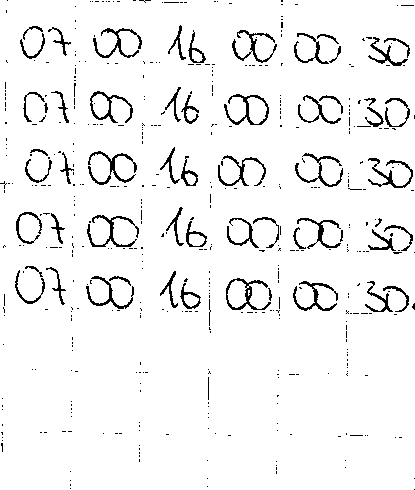 07 00 16 00 00 30
07 00 16 00 00 30.
07 00 16 00 00 30
07 00 16 00 00 30
07 00 16 00 00 30.